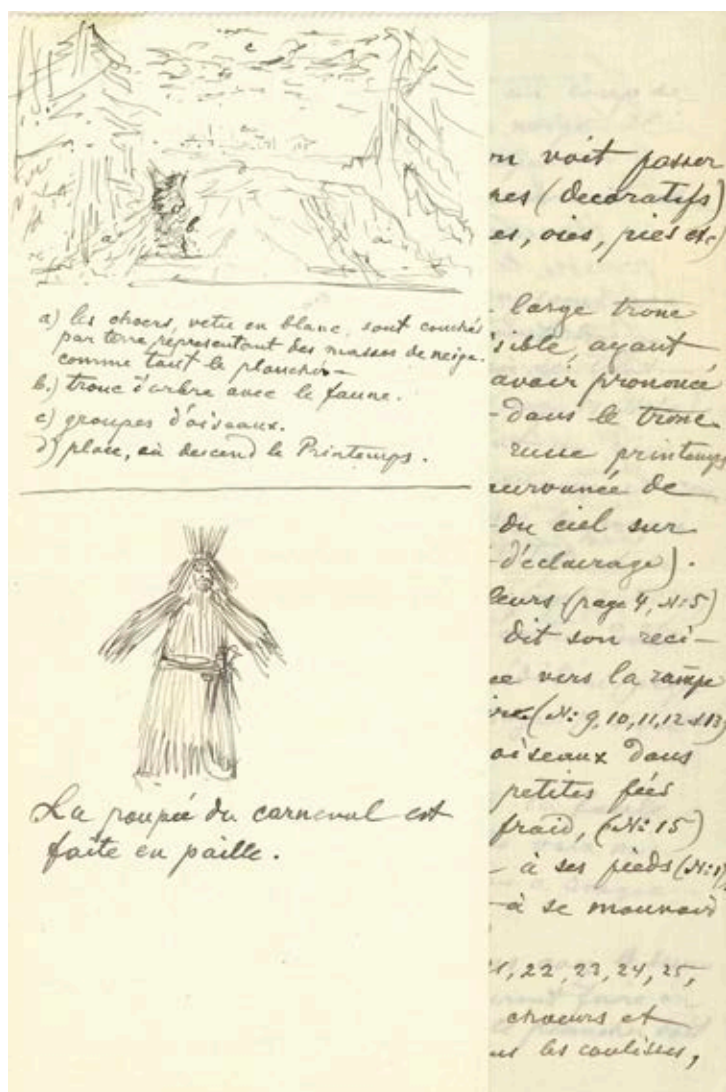 c
b
a
a
a) les choers, vetu en blanc, sont couchés
par terre representant des masses de neige.
comme tout le plancher –
b.) tronc d'arbre avec le faune.
c) groupes d'oiseaux.
d) place, où descend le Printemps.
La poupée du carneval est
faite en paille.
on voit passer
nes (decoratifs)
es, oies, pies etc)
large tronc
sible, ayant
avoir prononcé
dans le tronc.
russe printemps
couronnée de
du ciel sur
d'eclairage).
leurs (page 4, №:5)
dit son reci–
ce vers la rampe
(№: 9, 10, 11, 12 & 13)
oiseaux dans
petites fées
froid, (№: 15)
à ses pieds (№:
à se mouvoir
21, 22, 23, 24, 25,
choeurs et
les coulisses,